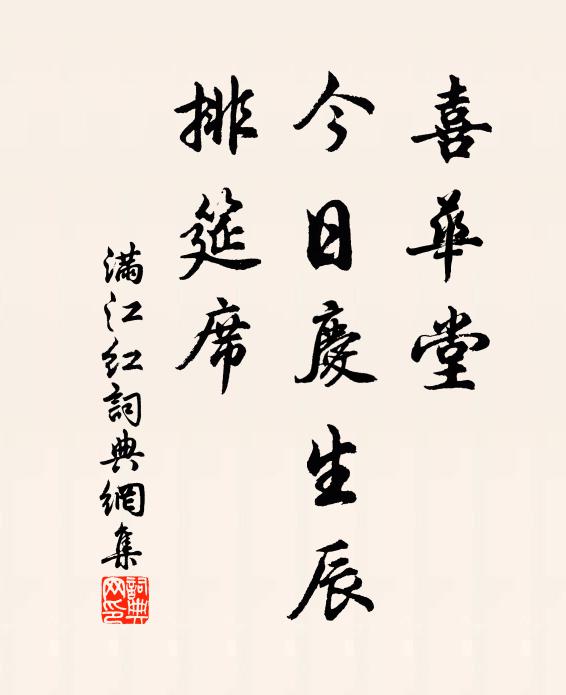 喜華堂
今日慶生辰
排筵席
满江紅詞典網集
詞典网印